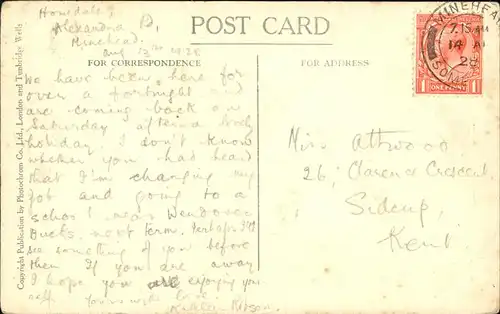 POST CARD
FOR CORRESPONDENCE
FOR ADDRESS
Copyright Publication by Photochrom Co., Ltd., London and Tunbridge Wells
Alexandra Rd,
Minehead.
Aug 13th 1928
We have been here for
over a fortnight and
are coming back on
Saturday after a lovely
holiday I don't know
whether you had heard
that I'm changing my
job and going to a
school near Wendover
Bucks. next term. Perhaps I'll
see something of you before
then If you are away
I hope you are enjoying your
self. Yours with love
MINEHEAD
7.15 AM
14 AU
28
SOMERSET
ONE PENNY
Miss Attwood
26, Clarence Crescent,
Sidcup,
Kent